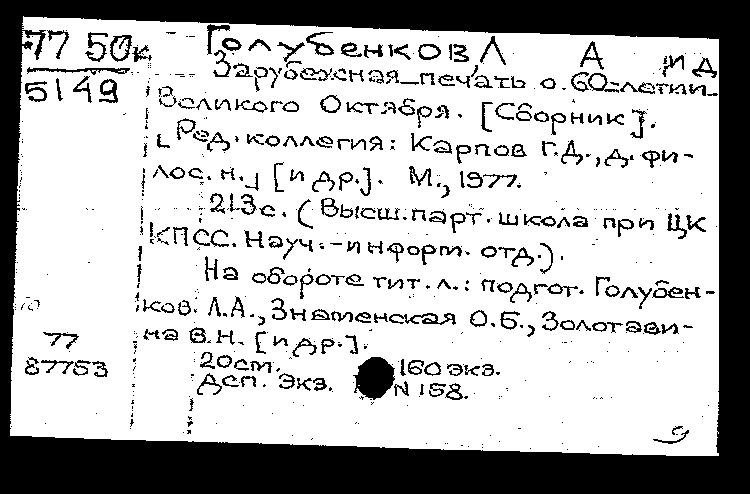 77 50к
5149
Голубенков, Л А и д
Зарубежная печать о 60-летии
Великого Октября. [Сборник].
[Ред. коллегия: Карпов Г.Д., д. фи-
лос. н.] [и др.]. М., 1977.
213с. (Высш. парт. школа при ЦК
КПСС. Науч.-информ. отд.).
На обороте тит. л.: подгот. Голубен-
ков Л.А., Знаменская О.Б., Золотави-
на В.Н. [и др.].
77
87753
20см. 160 экз.
Дсп. Экз. N 158.
9